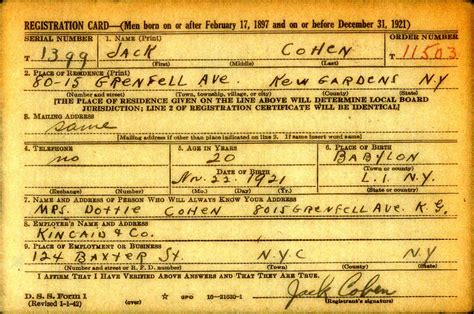 REGISTRATION CARD—(Men born on or after February 17, 1897 and on or before December 31, 1921)
SERIAL NUMBER 1. NAME (Print) ORDER NUMBER
T 1399 JACK COHEN 11503
(First) (Middle) (Last)
2. PLACE OF RESIDENCE (Print)
80-15 GRENFELL AVE. KEW GARDENS N.Y
(Number and street) (Town, township, village, or city) (County) (State)
[THE PLACE OF RESIDENCE GIVEN ON THE LINE ABOVE WILL DETERMINE LOCAL BOARD
JURISDICTION; LINE 2 OF REGISTRATION CERTIFICATE WILL BE IDENTICAL]
3. MAILING ADDRESS
same
[Mailing address if other than place indicated on line 2. If same insert word same]
4. TELEPHONE 5. AGE IN YEARS 6. PLACE OF BIRTH
no 20 BABYLON
DATE OF BIRTH (Town or county)
Nov. 22. 1921 L.I. N.Y.
(Exchange) (Number) (Mo.) (Day) (Yr.) (State or country)
7. NAME AND ADDRESS OF PERSON WHO WILL ALWAYS KNOW YOUR ADDRESS
MRS. DOTTIE COHEN 8015 GRENFELL AVE. K.G.
8. EMPLOYER'S NAME AND ADDRESS
KINCAID & CO.
9. PLACE OF EMPLOYMENT OR BUSINESS
124 BAXTER St. N.Y.C N.Y
(Number and street or R. F. D. number) (Town) (County) (State)
I AFFIRM THAT I HAVE VERIFIED ABOVE ANSWERS AND THAT THEY ARE TRUE.
D. S. S. Form 1
(Revised 1-1-42) (over) GPO 16-21630-1 Jack Cohen
(Registrant's signature)